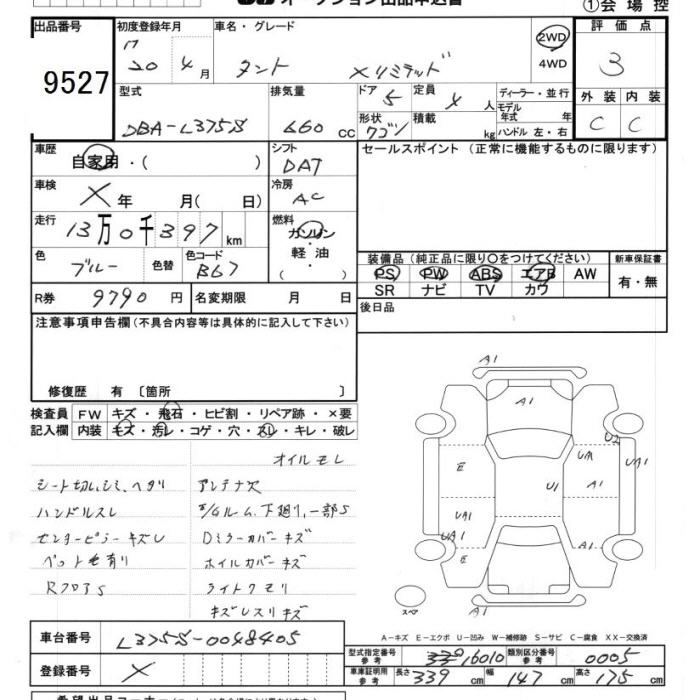 オークション出品申込書
①会場控
出品番号 初度登録年月 車名・グレード 評価点
9527 20年4月 タント Xリミテッド 2WD 3
4WD
型式 排気量 ドア 5 定員 4人 ディーラー・並行 外装 内装
DBA-L375S 660cc 形状 ワゴン 積載 kg モデル年式 年 C C
ハンドル左・右
車歴 自家用・( ) シフト DAT セールスポイント(正常に機能するものに限ります)
車検 X年 月( 日) 冷房 AC
走行 13万0千397km 燃料 ガソリン
軽油
( )
色 ブルー 色替 色コード B67
装備品(純正品に限り○をつけてください) 新車保証書
PS PW ABS エアB AW 有・無
SR ナビ TV カワ
R券 9790円 名変期限 月 日 後日品
注意事項申告欄(不具合内容等は具体的に記入して下さい)
修復歴 有〔箇所 〕
検査員 FW キズ・飛石・ヒビ割・リペア跡・×要
記入欄 内装 キズ・汚レ・コゲ・穴・スレ・キレ・破レ
オイルモレ
シート切レ、シミ、ヘタリ アンテナ欠
ハンドルスレ E/Gルーム、下廻り、一部S
センターピラーキズレ Dミラーカバーキズ
ペット毛有り ホイルカバーキズ
RフロアS ライトクモリ
キズレスリキズ
A1
A1
U2
E
UA
UA1
U1
A1
UA1
UA1
A1
E
スペア
A1
A-キズ E-エクボ U-凹み W-補修跡 S-サビ C-腐食 XX-交換済
車台番号 L375S-0048405
型式指定番号 参考 16010 類別区分番号 参考 0005
登録番号 X
車庫証明用 参考 長さ 339cm 幅 147cm 高さ 175cm
希望出品コーナー